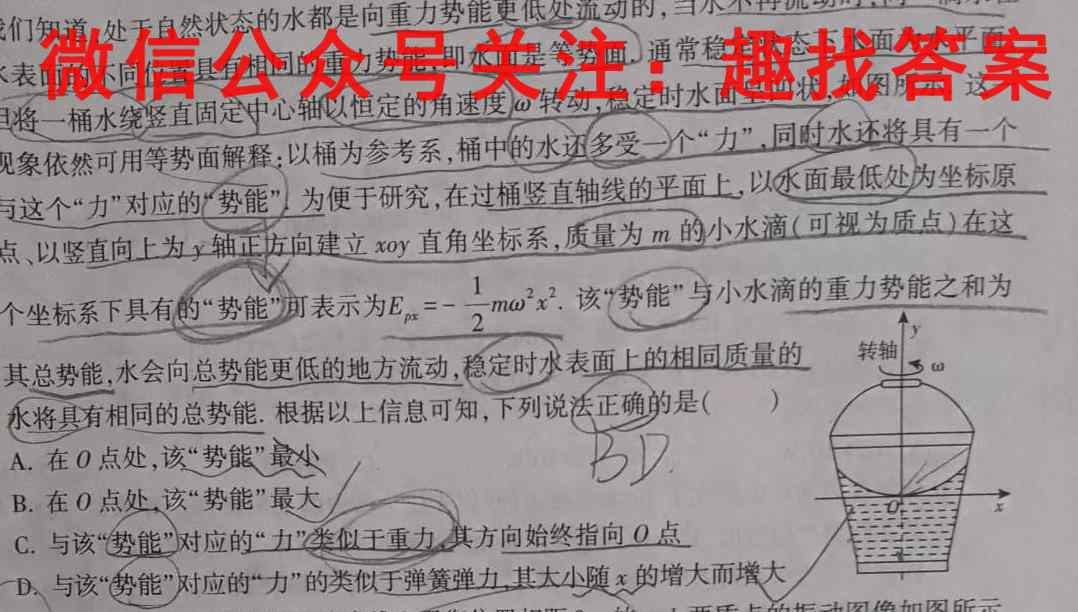 我们知道,处于自然状态的水都是向重力势能更低处流动的,当水不再流动时,
微信公众号关注:趣找答案
水表面的不同位置具有相同的重力势能,即水面是等势面.通常稳定状态下水面为水平面,
但将一桶水绕竖直固定中心轴以恒定的角速度ω转动,稳定时水面呈凹状,如图所示.这一
现象依然可用等势面解释:以桶为参考系,桶中的水还多受一个“力”,同时水还将具有一个
与这个“力”对应的“势能”.为便于研究,在过桶竖直轴线的平面上,以水面最低处为坐标原
点、以竖直向上为y轴正方向建立xoy直角坐标系,质量为m的小水滴(可视为质点)在这
个坐标系下具有的“势能”可表示为Eₚₓ=-1/2mω²x².该“势能”与小水滴的重力势能之和为
其总势能,水会向总势能更低的地方流动,稳定时水表面上的相同质量的
水将具有相同的总势能.根据以上信息可知,下列说法正确的是( )
BD
A.在O点处,该“势能”最小
B.在O点处,该“势能”最大
C.与该“势能”对应的“力”类似于重力,其方向始终指向O点
D.与该“势能”对应的“力”的类似于弹簧弹力,其大小随x的增大而增大
y
转轴
ω
O
x